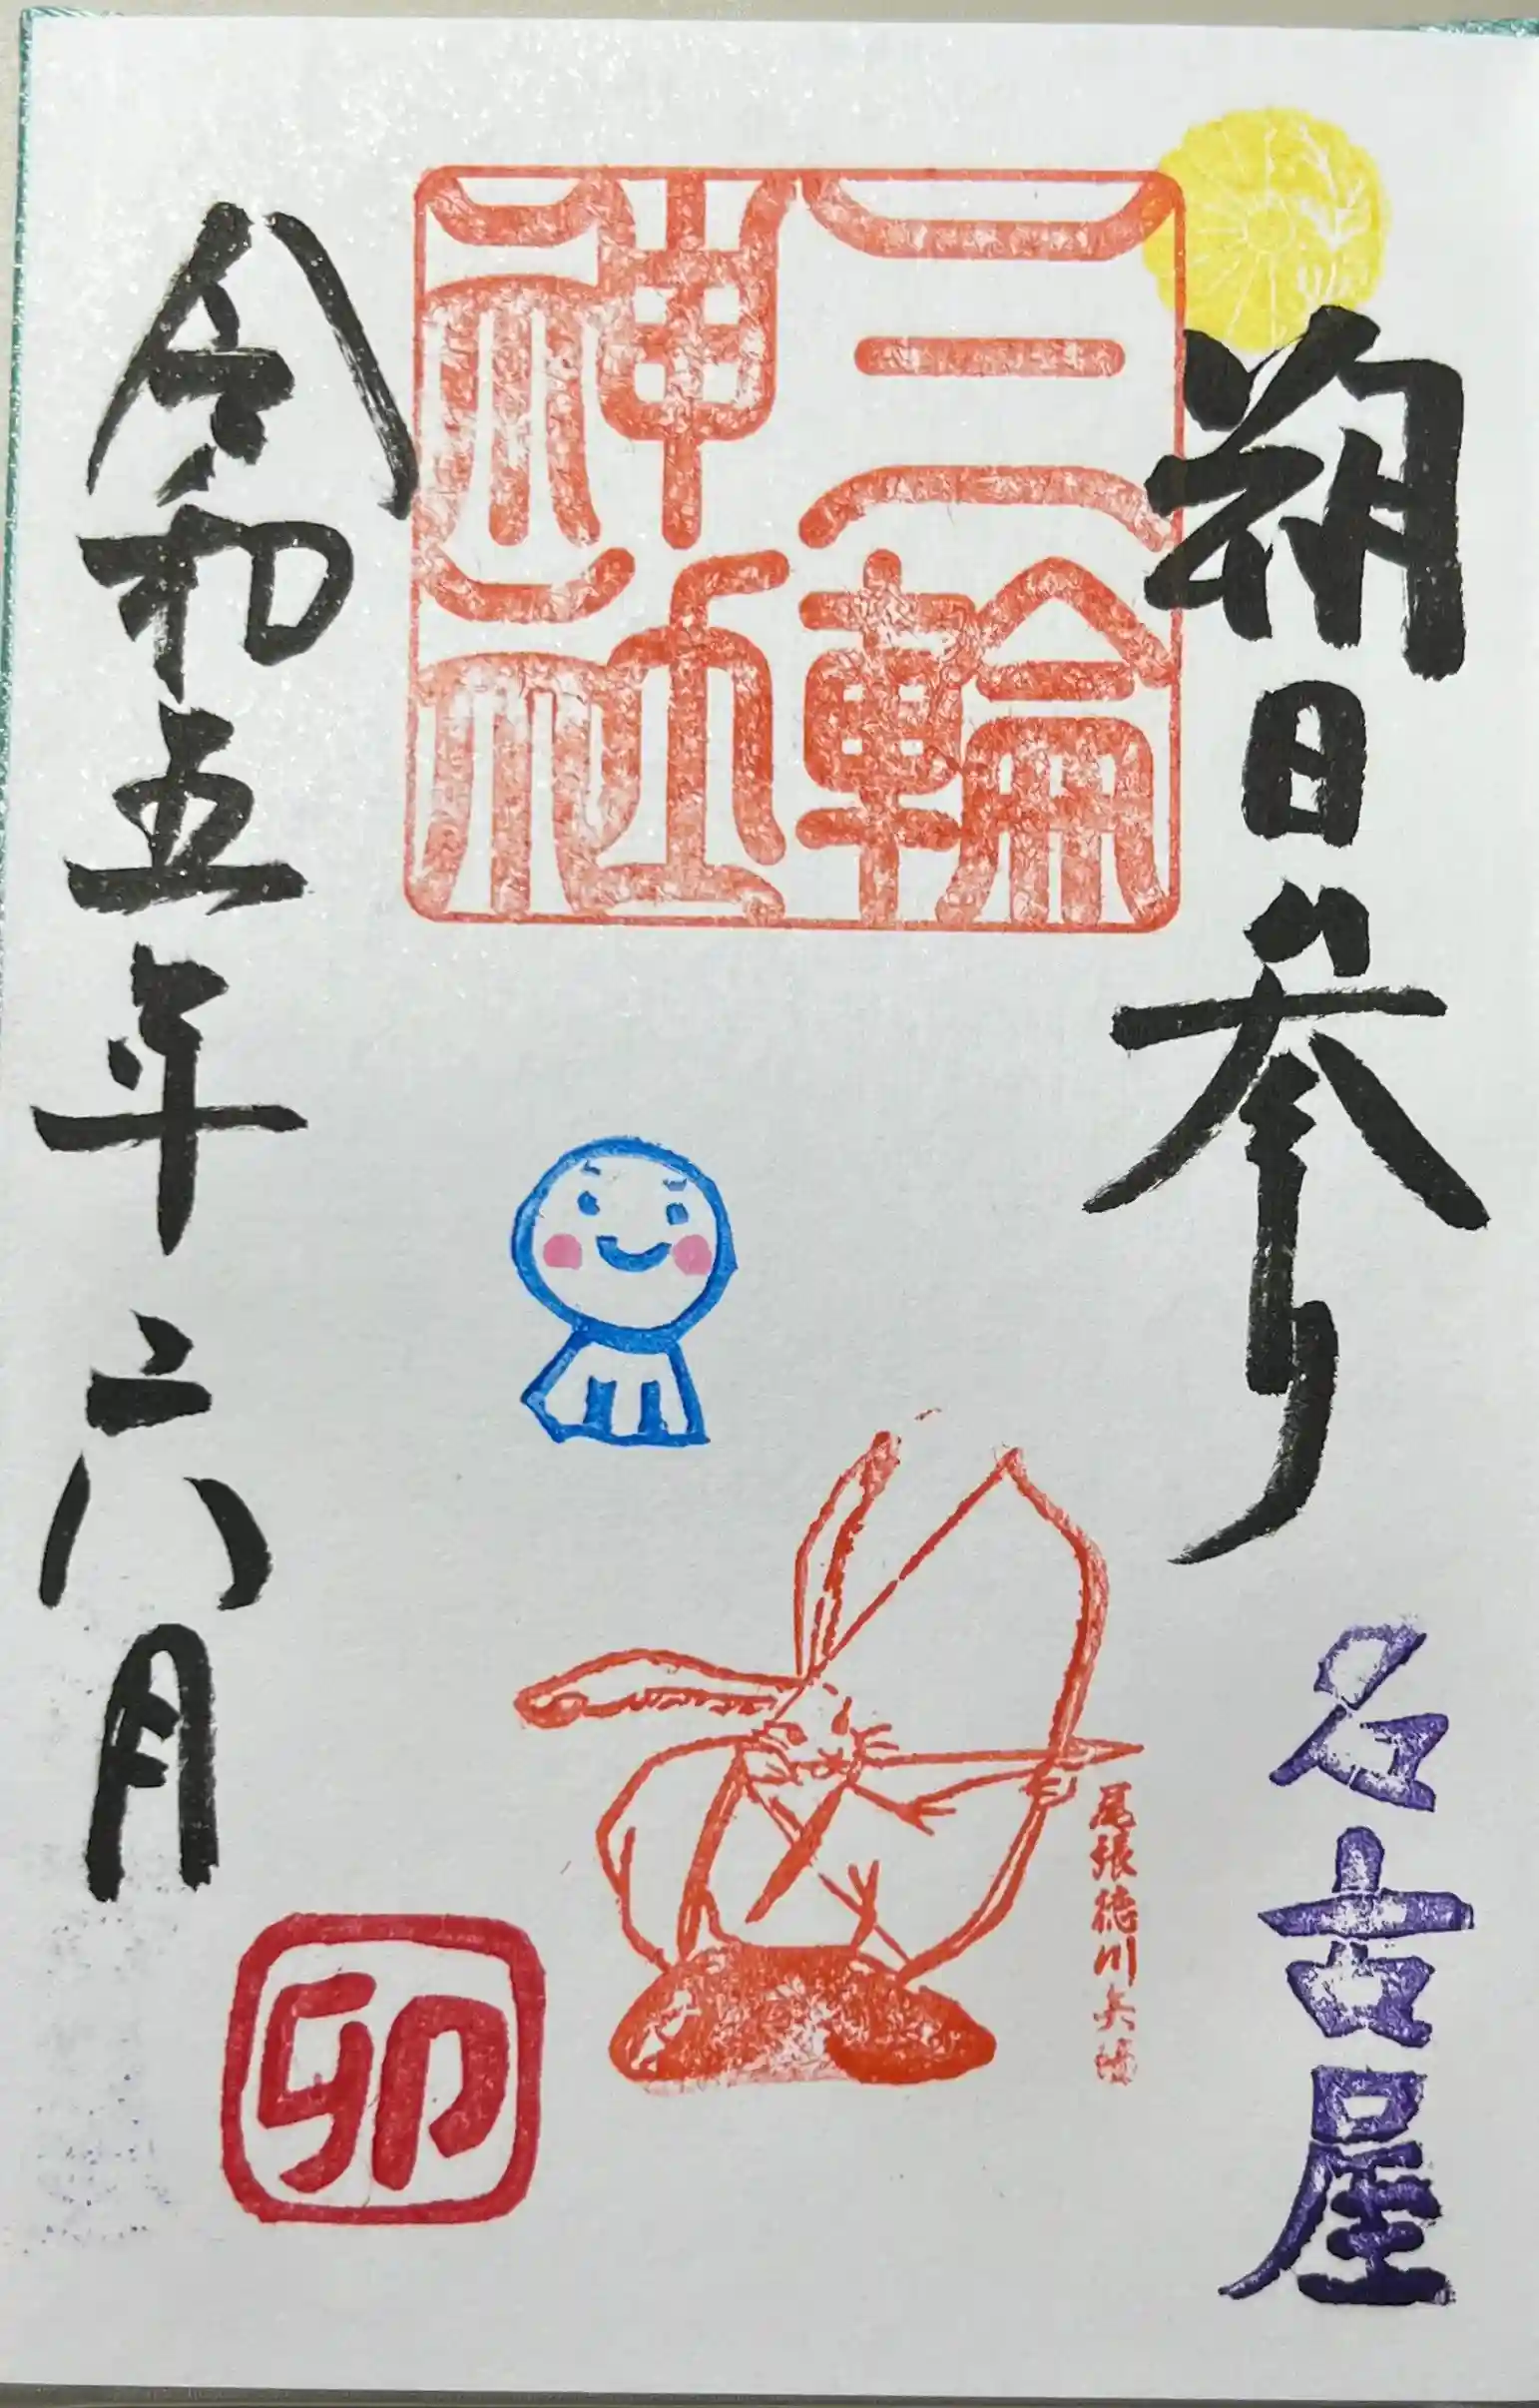 朔日参り
名古屋
三輪
神社
尾張徳川兵
令和五年六月
卯